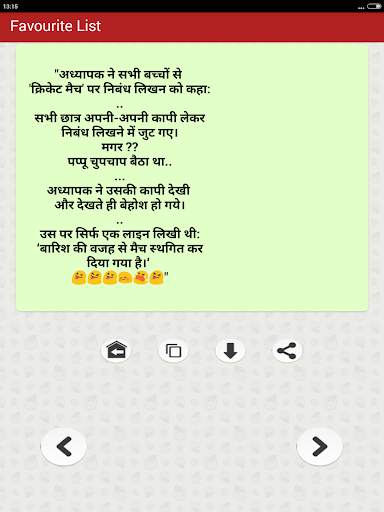 13:15
Favourite List
"अध्यापक ने सभी बच्चों से
'क्रिकेट मैच' पर निबंध लिखन को कहा:
..
सभी छात्र अपनी-अपनी कापी लेकर
निबंध लिखने में जुट गए।
मगर ??
पप्पू चुपचाप बैठा था..
...
अध्यापक ने उसकी कापी देखी
और देखते ही बेहोश हो गये।
..
उस पर सिर्फ एक लाइन लिखी थी:
'बारिश की वजह से मैच स्थगित कर
दिया गया है।'
"